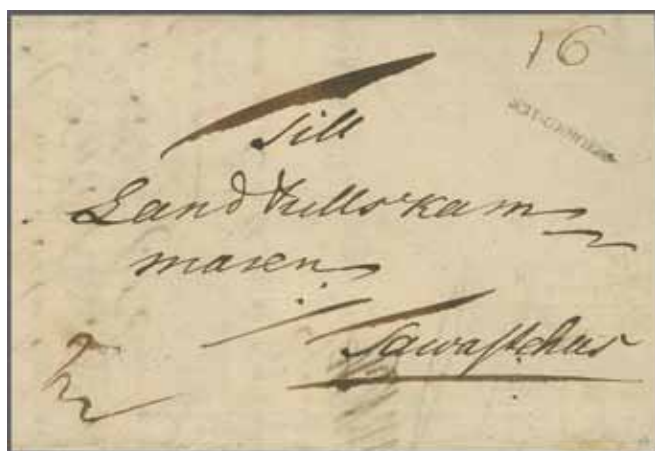 16
Till
Landtullskam=
maren
Tawastehus